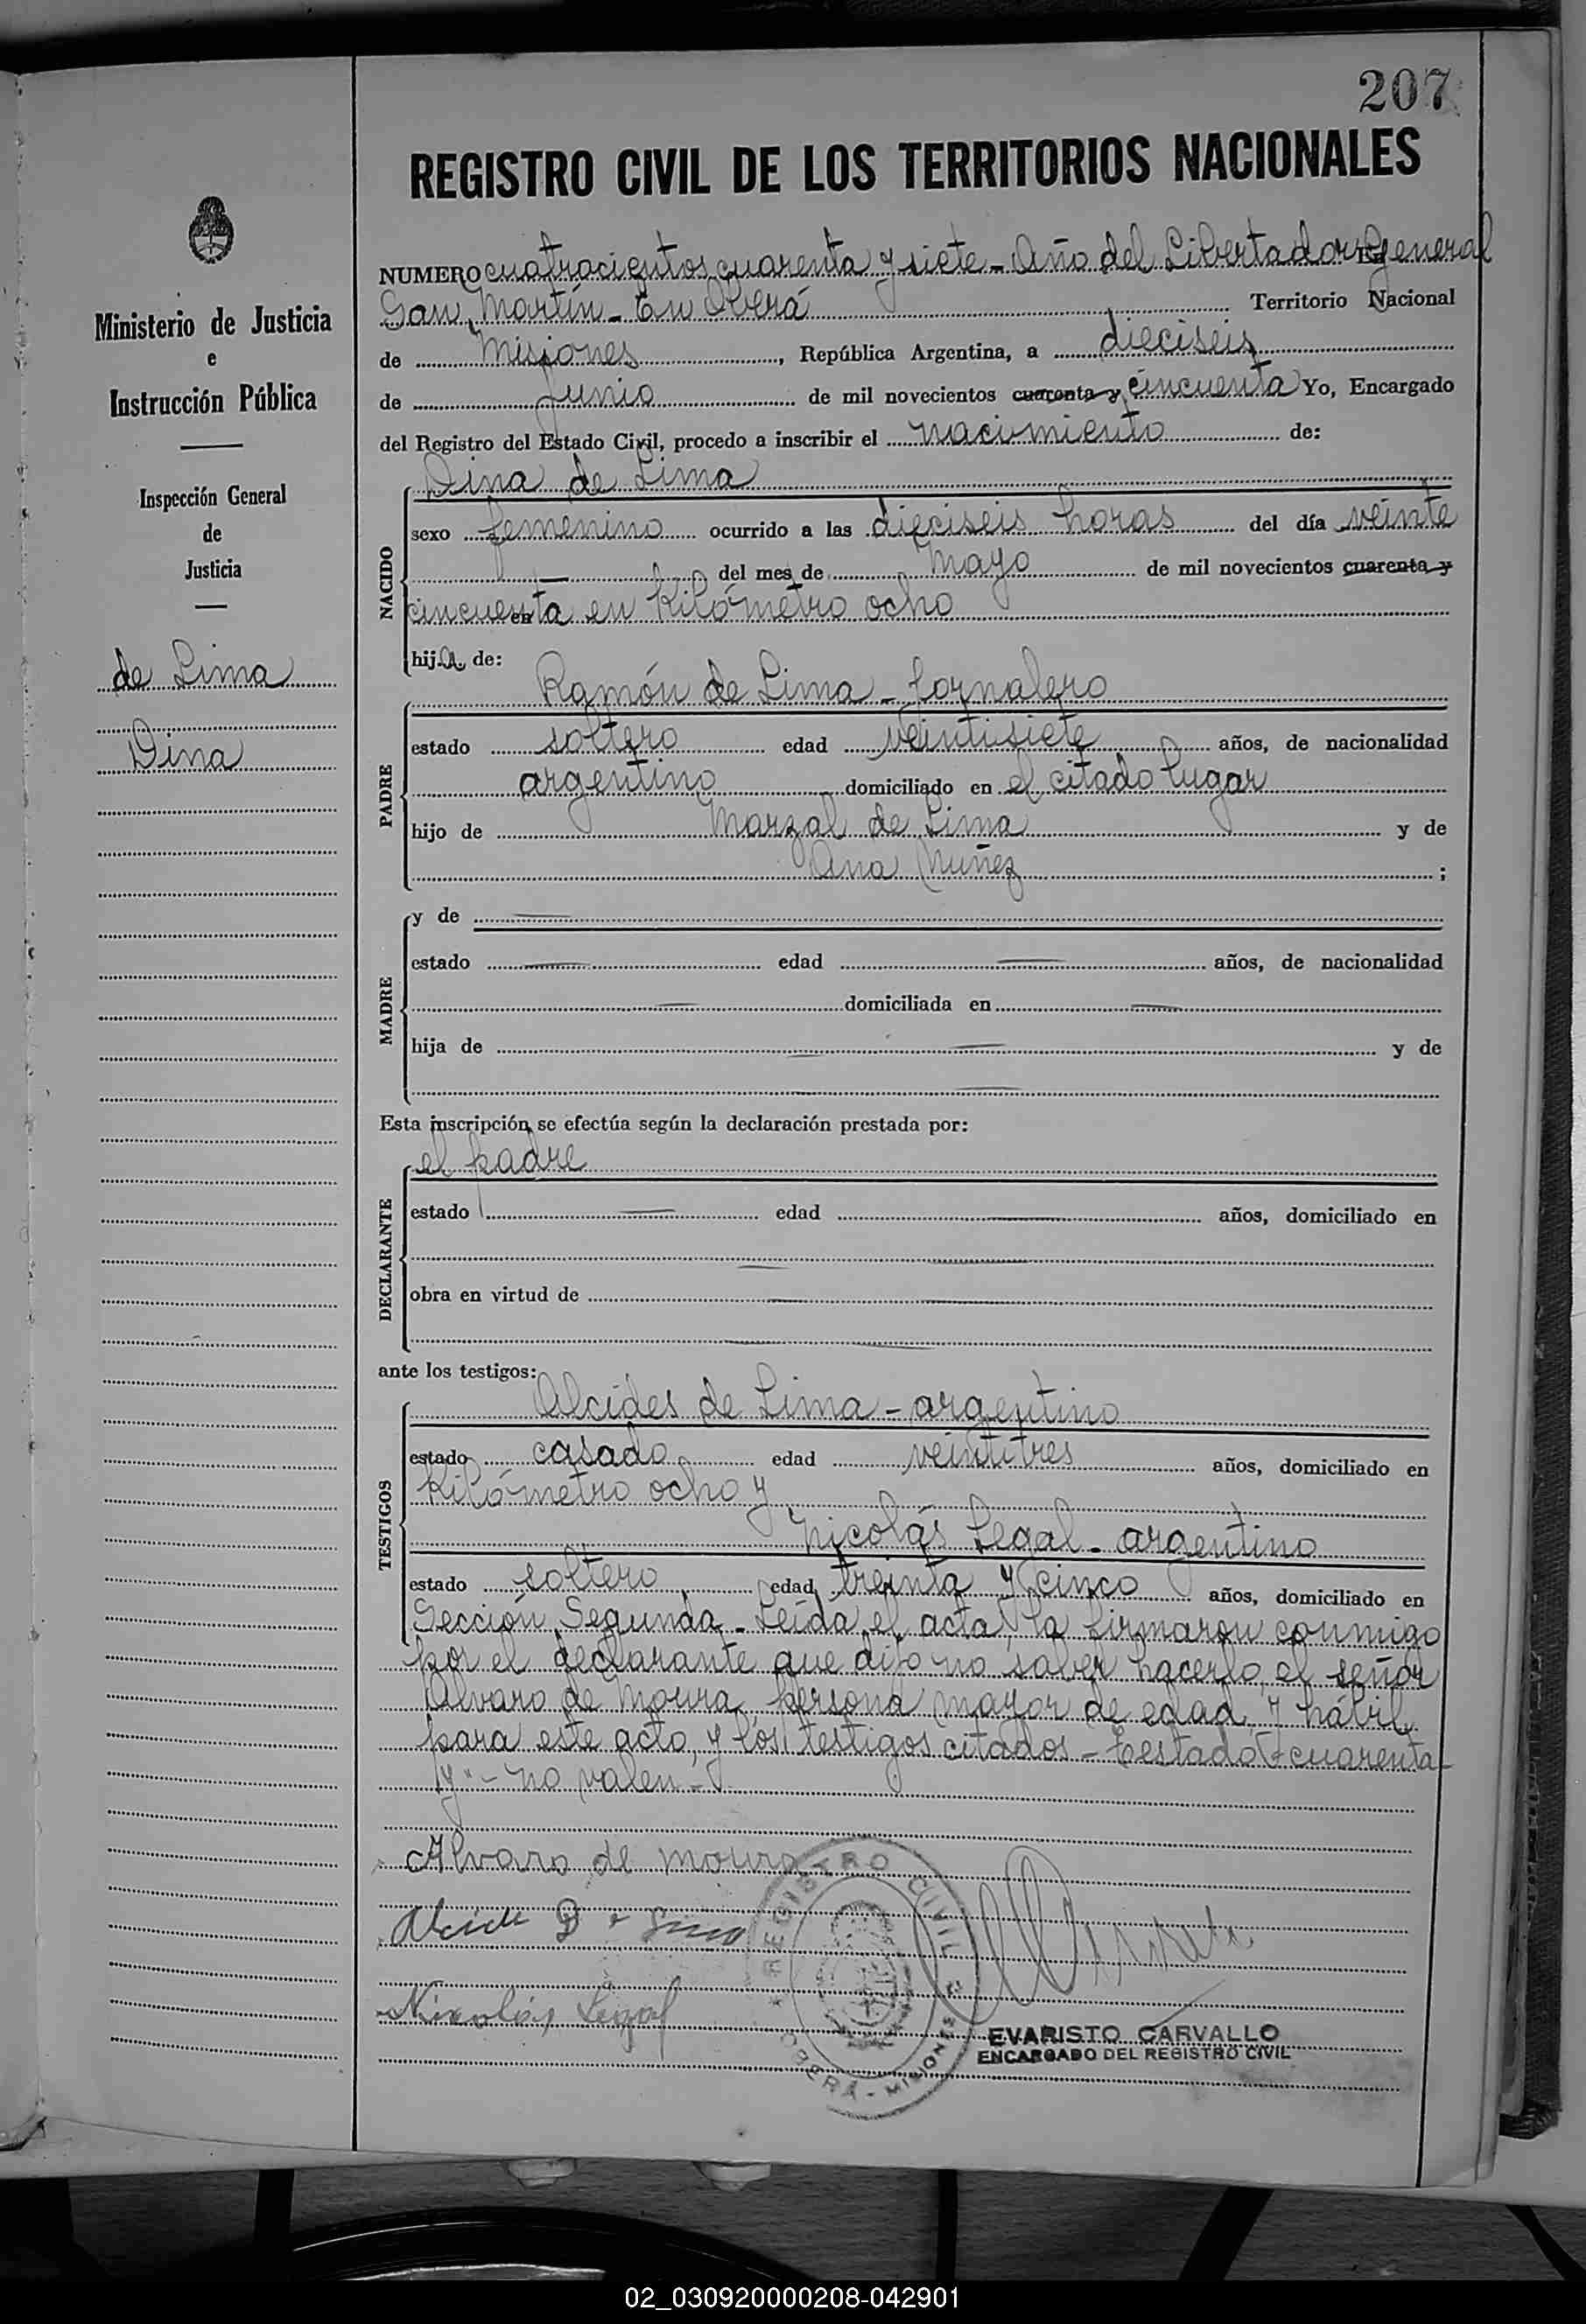 207
REGISTRO CIVIL DE LOS TERRITORIOS NACIONALES
Ministerio de Justicia
e
Instrucción Pública
Inspección General
de
Justicia
de Lima
Dina
NUMERO cuatrocientos cuarenta y siete - Año del Libertador General
San Martín - En Oberá Territorio Nacional
de Misiones, República Argentina, a dieciseis
de Junio de mil novecientos cuarenta y cincuenta Yo, Encargado
del Registro del Estado Civil, procedo a inscribir el nacimiento de:
NACIDO
Dina de Lima
sexo femenino ocurrido a las dieciseis horas del día veinte
— del mes de Mayo de mil novecientos cuarenta y
cincuenta en Kilómetro ocho
hija de:
PADRE
Ramón de Lima - Jornalero
estado soltero edad veintisiete años, de nacionalidad
argentino domiciliado en el citado lugar
hijo de Marzal de Lima y de
Ana Nuñez ;
MADRE
y de —
estado — edad — años, de nacionalidad
— domiciliada en —
hija de — y de
—
Esta inscripción se efectúa según la declaración prestada por:
DECLARANTE
el padre
estado — edad — años, domiciliado en
—
obra en virtud de —
—
ante los testigos:
TESTIGOS
Alcides de Lima - argentino
estado casado edad veintitres años, domiciliado en
Kilómetro ocho y
Nicolás Legal - argentino
estado soltero edad treinta y cinco años, domiciliado en
Sección Segunda - Leída el acta, la firmaron conmigo
por el declarante que dijo no saber hacerlo, el señor
Alvaro de Moura, persona mayor de edad y hábil
para este acto, y los testigos citados - Testado "cuarenta
y" - no valen -
Alvaro de moura
Nicolás Legal
REGISTRO CIVIL
OBERÁ - MISIONES
EVARISTO CARVALLO
ENCARGADO DEL REGISTRO CIVIL
02_030920000208-042901